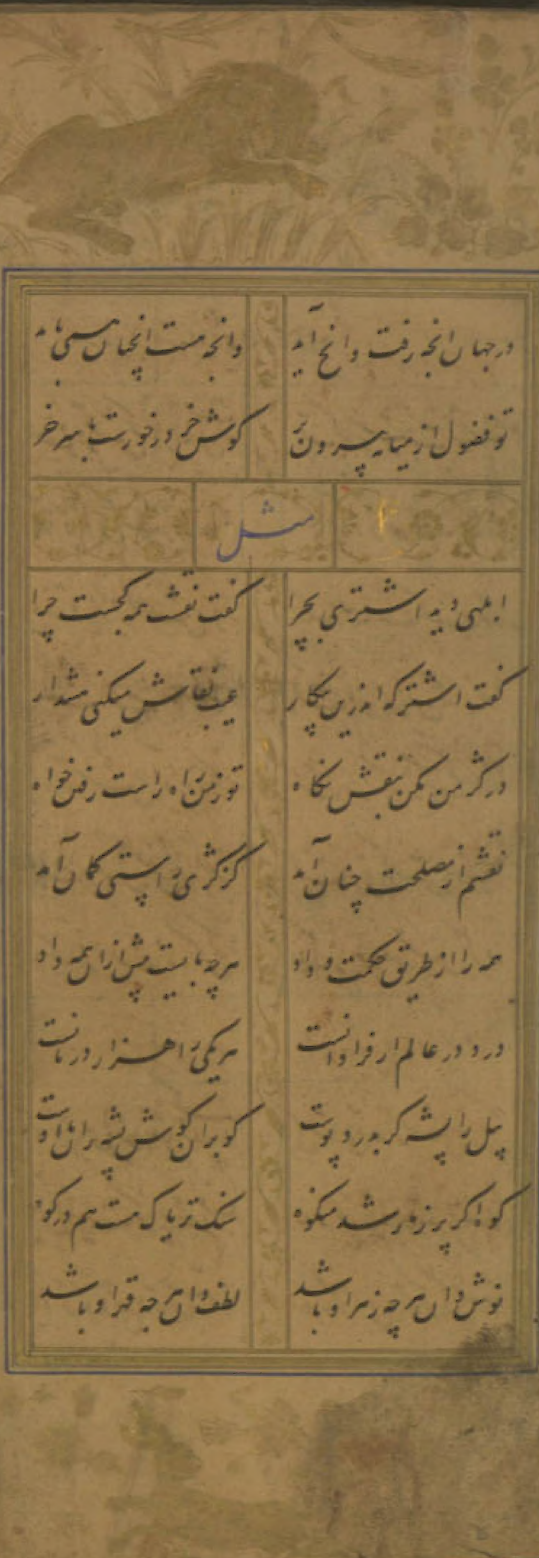 در جهان انجه رفت و انج آید وانجه هست انچنان همی باید
تو فضول از میانه بیرون بَر گوش خر در خورست با سر خر
مثل
ابلهی دید اشتری بچرا گفت نقشت همه کجست چرا
گفت اشتر که اندرین پیکار عیب نقاش میکنی هشدار
در کژی من مکن بنقش نگاه تو ز من راه راست رفتن خواه
نقشم از مصلحت چنان آمد کز کژی راستی کمان آمد
همه را از طریق حکمت و داد هرچه بایست پیش ازان همه داد
درد در عالم ار فراوانست هر یکی را هزار درمانست
پیل را پشه گر بدرد پوست گو بران گوش پشه ران با اوست
کوه اگر پر ز مار شد مشکوه سنگ تریاک هست هم در کوه
نوش دان هرچه زهر او باشد لطف دان هرجه قهر او باشد